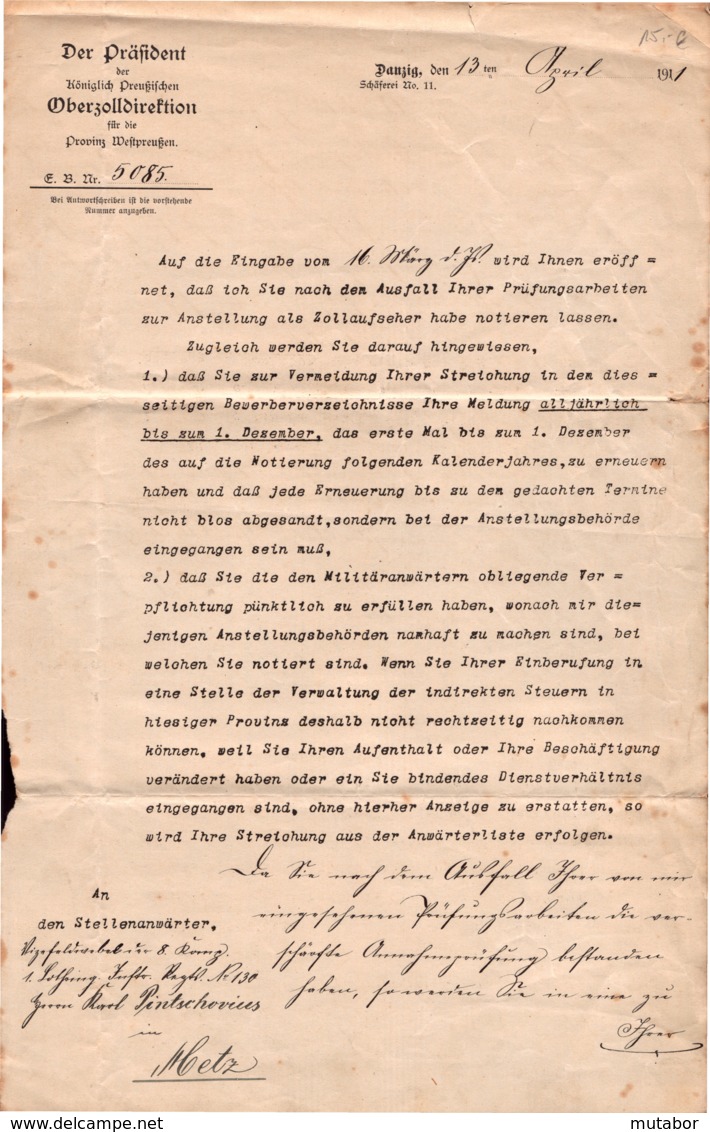 15,- €
Der Präsident
der
Königlich Preußischen
Oberzolldirektion
für die
Provinz Westpreußen.
E. B. Nr. 5085.
Bei Antwortschreiben ist die vorstehende
Nummer anzugeben.
Danzig, den 13ten April 1911
Schäferei No. 11.
Auf die Eingabe vom 16. März d. Js. wird Ihnen eröff=
net, daß ich Sie nach dem Ausfall Ihrer Prüfungsarbeiten
zur Anstellung als Zollaufseher habe notieren lassen.
Zugleich werden Sie darauf hingewiesen,
1.) daß Sie zur Vermeidung Ihrer Streichung in dem dies =
seitigen Bewerberverzeichnisse Ihre Meldung alljährlich
bis zum 1. Dezember, das erste Mal bis zum 1. Dezember
des auf die Notierung folgenden Kalenderjahres, zu erneuern
haben und daß jede Erneuerung bis zu dem gedachten Termine
nicht blos abgesandt, sondern bei der Anstellungsbehörde
eingegangen sein muß,
2.) daß Sie die den Militäranwärtern obliegende Ver =
pflichtung pünktlich zu erfüllen haben, wonach mir die=
jenigen Anstellungsbehörden namhaft zu machen sind, bei
welchen Sie notiert sind. Wenn Sie Ihrer Einberufung in
eine Stelle der Verwaltung der indirekten Steuern in
hiesiger Provinz deshalb nicht rechtzeitig nachkommen
können, weil Sie Ihren Aufenthalt oder Ihre Beschäftigung
verändert haben oder ein Sie bindendes Dienstverhältnis
eingegangen sind, ohne hierher Anzeige zu erstatten, so
wird Ihre Streichung aus der Anwärterliste erfolgen.
Da Sie nach dem Ausfall Ihrer von mir
eingesehenen Prüfungsarbeiten die ver-
schärfte Annahmeprüfung bestanden
haben, so werden Sie in eine zu
Ihrer
An
den Stellenanwärter,
Vizefeldwebel der 8. Komp.
1. Lothring. Inftr. Regts. No 130
Herrn Karl Pintschovius
in
Metz
delcampe.net
mutabor